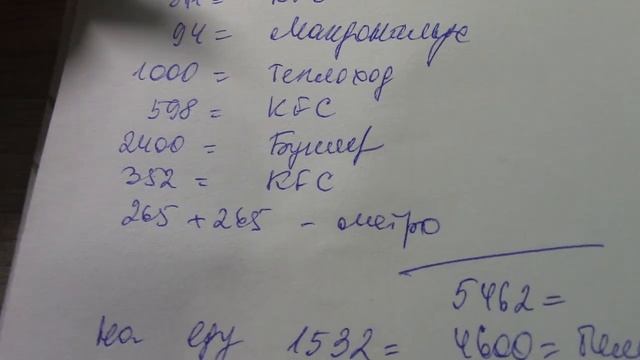 94 = Макдональдс
1000 = Теплоход
598 = KFC
2400 = Бункер
352 = KFC
265 + 265 - метро
5462 =
На еду 1532 = 4600 =